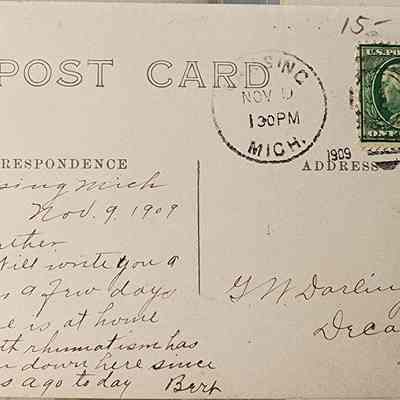 15-
POST CARD
SING
NOV 9
130PM
MICH.
1909
U.S. PO
ON
RESPONDENCE
ADDRESS
sing Mich
Nov. 9, 1909
ther
ill write you a
a few days
e is at home
th rhumatism has
down here since
s ago today Bert
G. W. Darlin
Deca